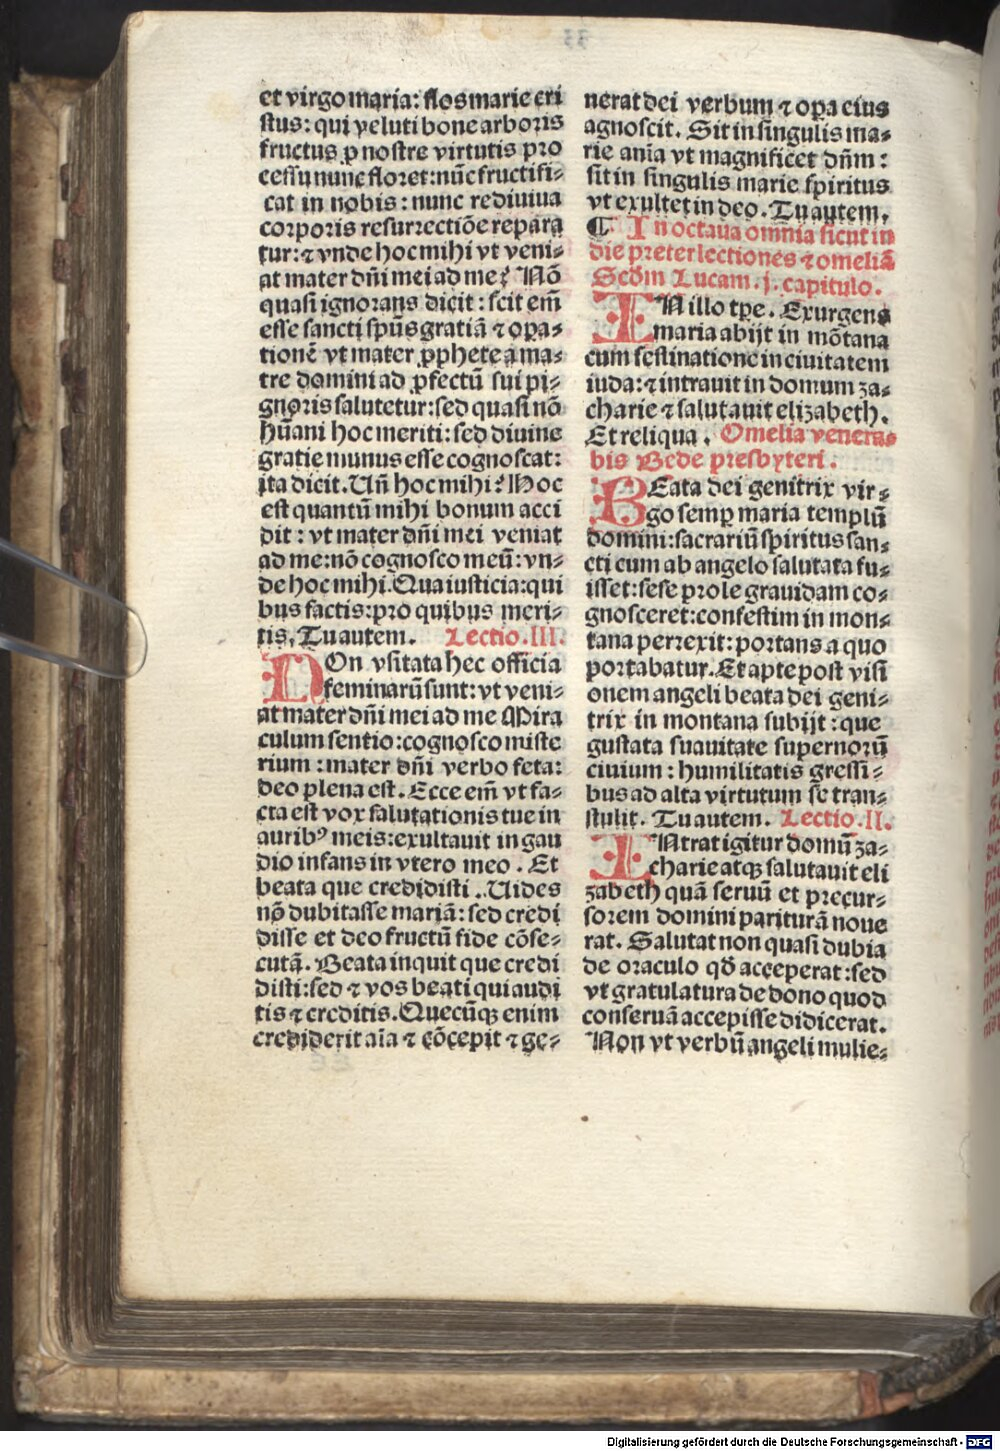 et virgo maria: flos marie cri
stus: qui veluti bone arboris
fructus ꝓ nostre virtutis pro
cessu nunc floret: nūc fructifi⸗
cat in nobis: nunc rediuiua
corporis resurrectiōe repara
tur: ⁊ vnde hoc mihi vt veni⸗
at mater dn̄i mei ad me? Nō
quasi ignorans dicit: scit em̄
esse sancti spūs gratiā ⁊ oꝑa⸗
tionē vt mater ꝓphete a ma⸗
tre domini ad ꝓfectū sui pi⸗
gnoris salutetur: sed quasi nō
hūani hoc meriti: sed diuine
gratie munus esse cognoscat:
ita dicit. Un̄ hoc mihi? Hoc
est quantū mihi bonum acci
dit: vt mater dn̄i mei veniat
ad me: nō cognosco meū: vn⸗
de hoc mihi. Qua iusticia: qui
bus factis: pro quibus meri⸗
tis. Tu autem. Lectio. III.
NOn vsitata hec officia
feminarū sunt: vt veni⸗
at mater dn̄i mei ad me Mira
culum sentio: cognosco miste
rium: mater dn̄i verbo feta:
deo plena est. Ecce em̄ vt fa⸗
cta est vox salutationis tue in
auribꝰ meis: exultauit in gau
dio infans in vtero meo. Et
beata que credidisti. Uides
nō dubitasse mariā: sed credi
disse et deo fructū fide cōse⸗
cutā. Beata inquit que credi
disti: sed ⁊ vos beati qui audi
tis ⁊ creditis. Quecūqꝫ enim
crediderit aīa ⁊ cōcepit ⁊ ge⸗
nerat dei verbum ⁊ oꝑa eius
agnoscit. Sit in singulis ma⸗
rie anīa vt magnificet dn̄m:
sit in singulis marie spiritus
vt exultet in deo. Tu autem.
¶ In octaua omnia sicut in
die preter lectiones ⁊ omeliā
Scd̄m Lucam. j. capitulo.
IN illo tꝑe. Exurgens
maria abijt in mōtana
cum festinatione in ciuitatem
iuda: ⁊ intrauit in domum za⸗
charie ⁊ salutauit elizabeth.
Et reliqua. Omelia venera⸗
bis Bede presbyteri.
BEata dei genitrix vir⸗
go semꝑ maria templū
domini: sacrariū spiritus san⸗
cti cum ab angelo salutata fu⸗
isset: sese prole grauidam co⸗
gnosceret: confestim in mon⸗
tana perrexit: portans a quo
portabatur. Et apte post visi
onem angeli beata dei geni⸗
trix in montana subijt: que
gustata suauitate supernorū
ciuium: humilitatis gressi⸗
bus ad alta virtutum se tran⸗
stulit. Tu autem. Lectio. II.
INtrat igitur domū za⸗
charie atqꝫ salutauit eli
zabeth quā seruū et precur⸗
sorem domini pariturā noue
rat. Salutat non quasi dubia
de oraculo qd̄ acceperat: sed
vt gratulatura de dono quod
conseruā accepisse didicerat.
Non vt verbū angeli mulie⸗
Digitalisierung gefördert durch die Deutsche Forschungsgemeinschaft - DFG